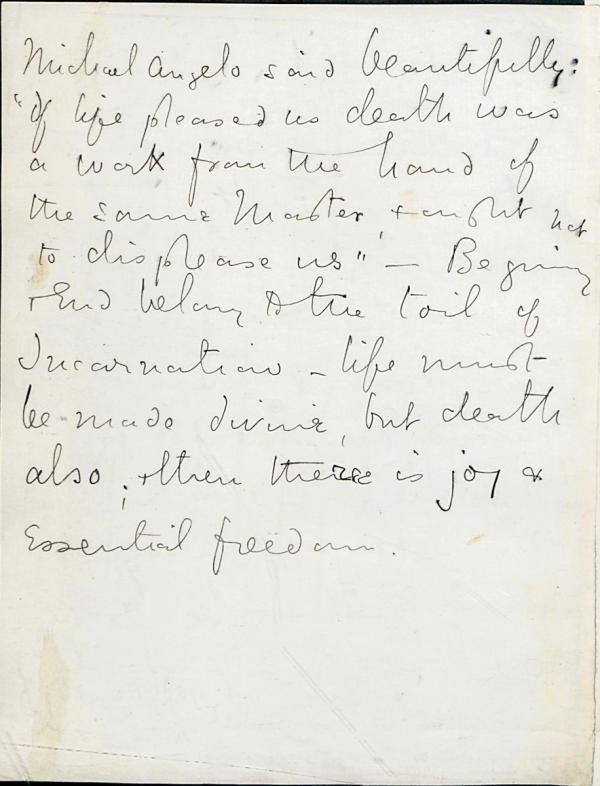 Michael Angelo said beautifully:
"If life pleased us death was
a work from the hand of
the same Master, & ought not
to displease us" — Begining
& End belong to the toil of
Incarnation – life must
be made divine, but death
also; & then there is joy &
Essential freedom.